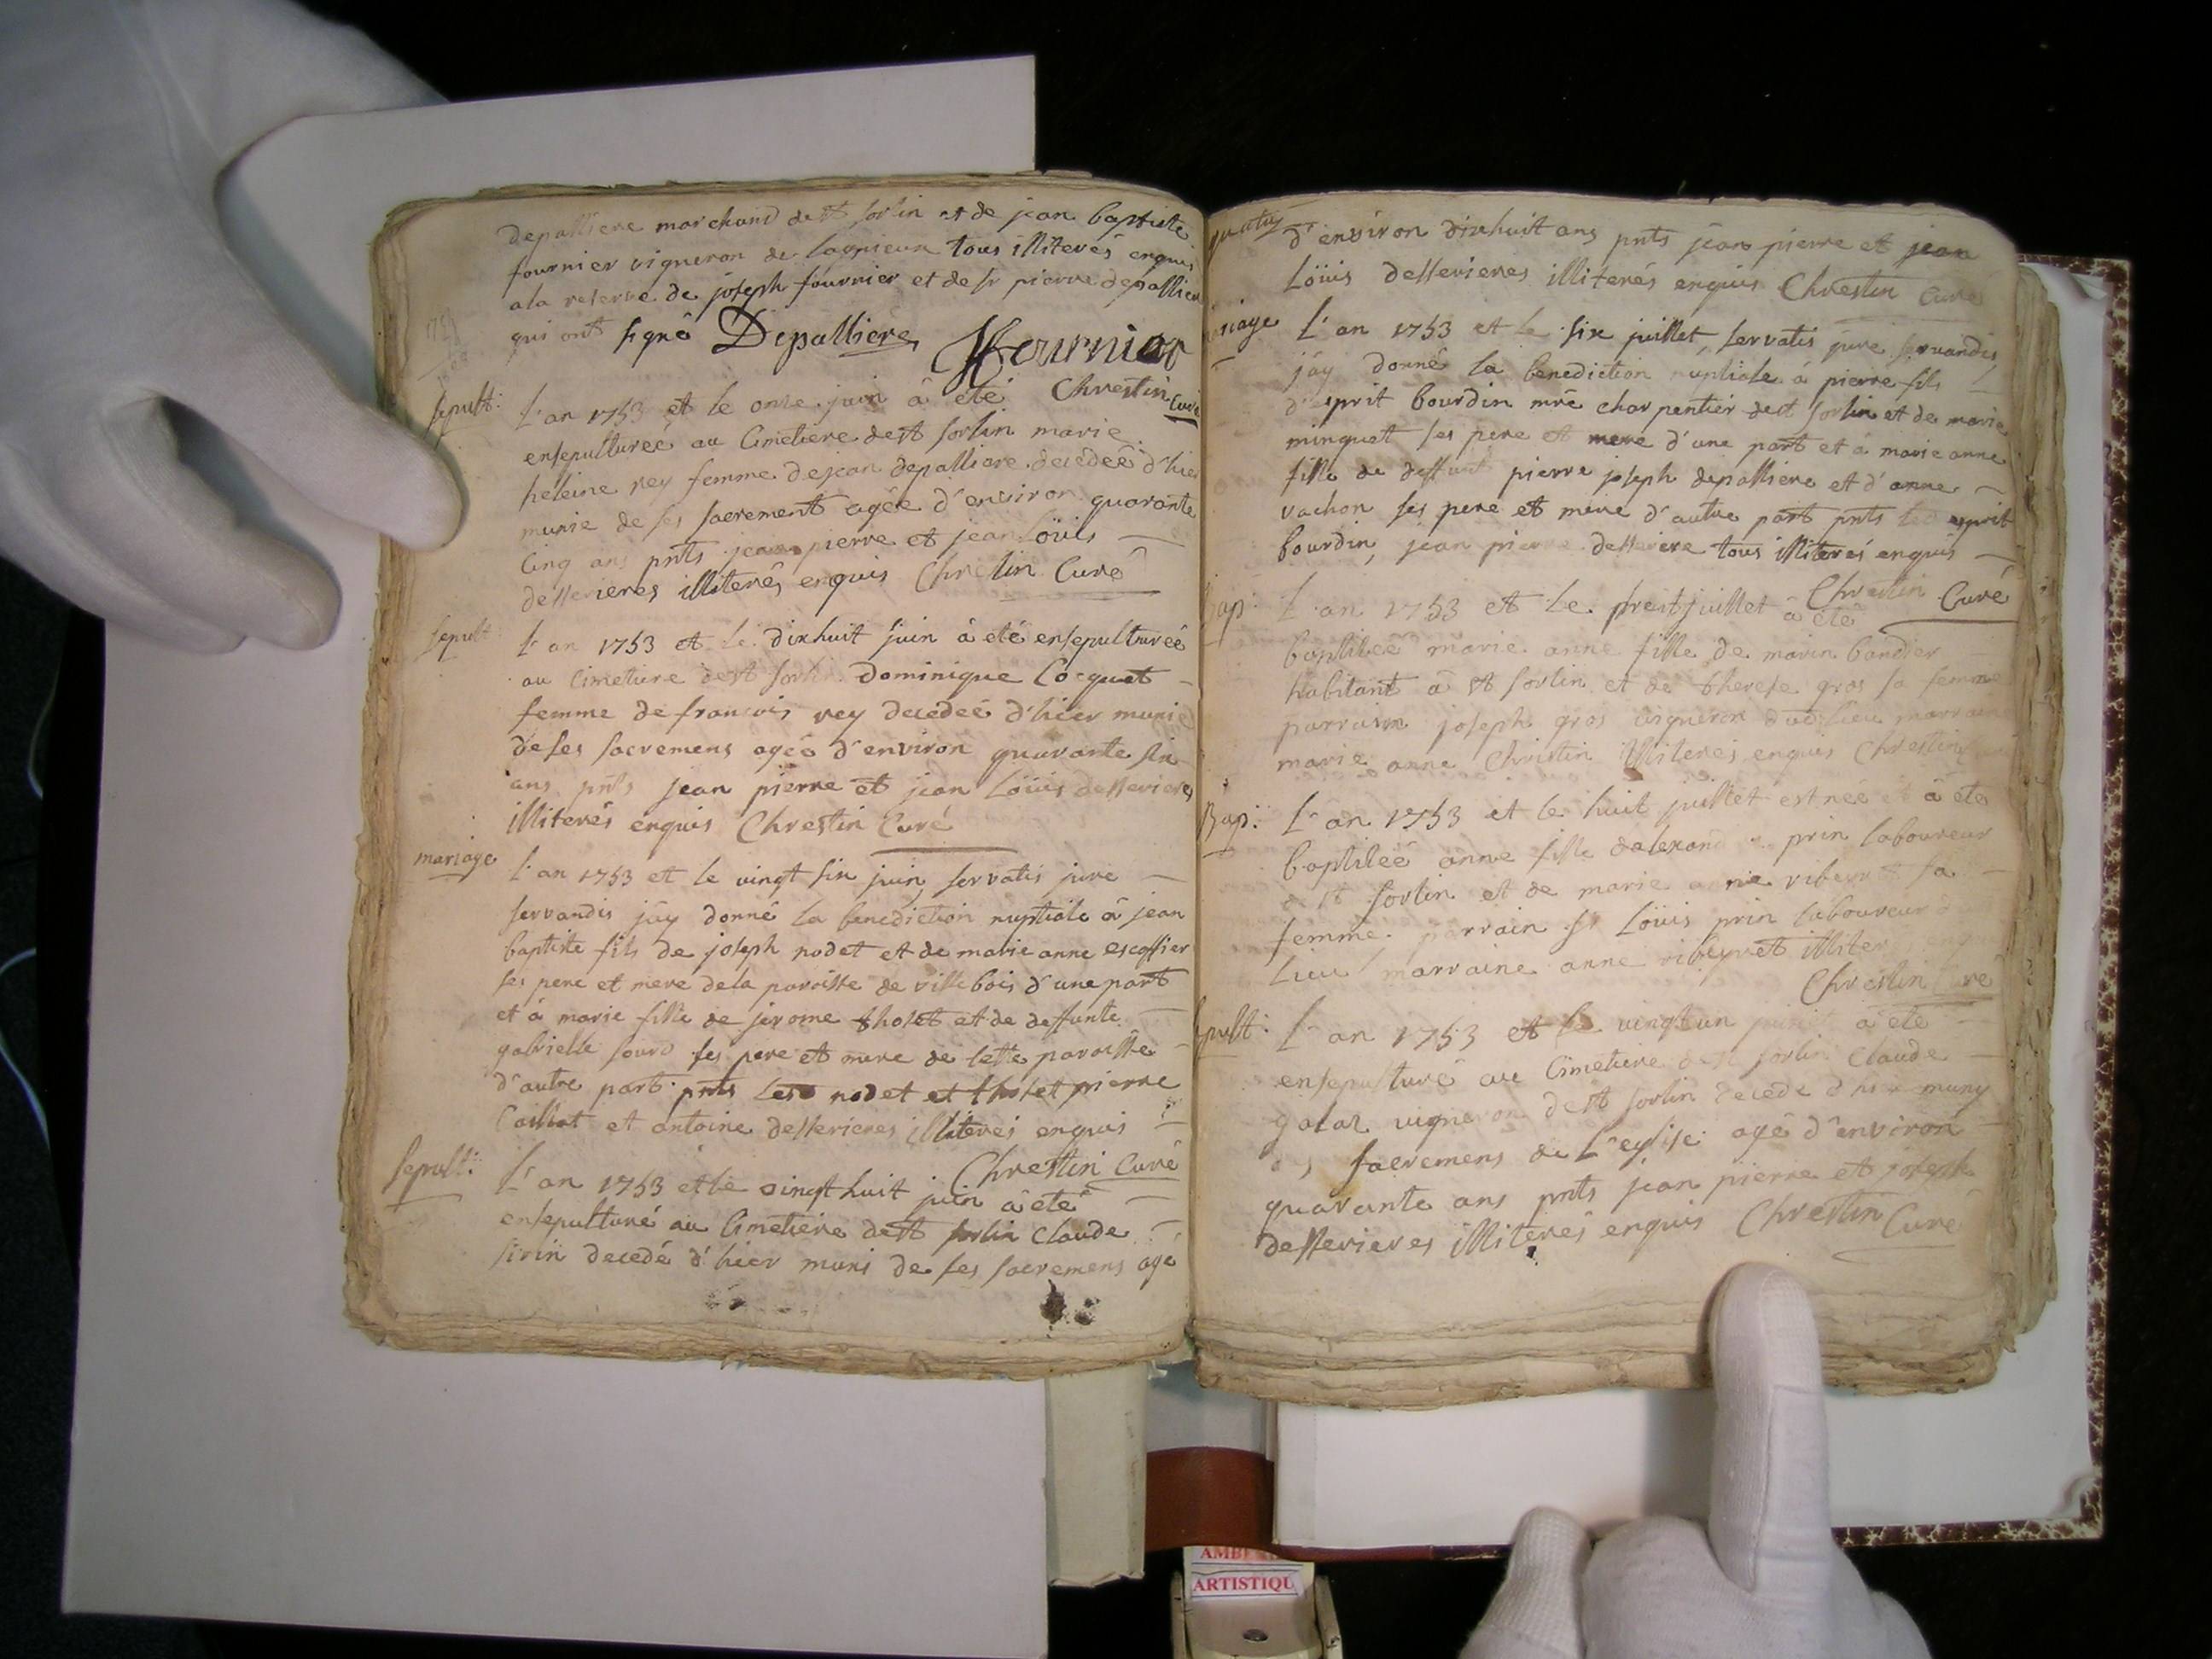 depalliere marchand de st sorlin et de jean baptiste
fournier vigneron de lagnieux tous illiterés enquis
a la reserve de joseph fournier et de sr pierre depalliere
qui ont signé Depalliere Jfournier
Chrestin Curé
sepult: L'an 1753 et le onze juin à été
ensepultureé au Cimetiere de st sorlin marie
heleine rey femme de jean depalliere decedeé d'hier
munie de ses sacrement ageé d'environ quarante
Cinq ans pnts jean pierre et jean Loüis
desserieres illiterés enquis Chrestin Curé
sepult L'an 1753 et le dixhuit juin à eté ensepultureé
au Cimetiere de st sorlin Dominique Cocquet
femme de francois rey decedeé d'hier munie
de ses sacremens ageé d'environ quarante six
ans pnts jean pierre et jean Loüis desserieres
illiterés enquis Chrestin Curé
mariage L'an 1753 et le vingt six juin, servatis jure
servandis jäy donné la benediction nuptiale à jean
baptiste fils de joseph nodet et de marie anne escoffier
ses pere et mere de la paroisse de villebois d'une part
et à marie fille de jerome tholet et de deffunte
gabrielle sourd ses pere et mere de cette paroisse
d'autre part pnts Lesd nodet et tholet pierre
Caillat et antoine desserieres illiterés enquis
Chrestin Curé
sepult: L'an 1753 et le vingt huit juin à eté
ensepulturé au Cimetiere de st sorlin Claude
sirin decedé d'hier muni de ses sacremens agé
d'environ dixhuit ans pnts jean pierre et jean
Loüis desserieres illiterés enquis Chrestin Curé
mariage L'an 1753 et le six juillet, servatis jure servandis
jäy donné la benediction nuptiale à pierre fils
d'esprit bourdin mre charpentier de st sorlin et de marie
minguat ses pere et mere d'une part et à marie anne
fille de deffunt pierre joseph depalliere et d'anne
vachon ses pere et mere d'autre part pnts led esprit
bourdin, jean pierre desseriere tous illiterés enquis
Chrestin Curé
Bap: L'an 1753 et le juillet à eté
baptiseé marie anne fille de marin bandier
habitant à st sorlin et de therese gros sa femme
parrain joseph gros vigneron dud lieu marraine
marie anne Chrestin illiterés enquis Chrestin Curé
Bap: L'an 1753 et le huit juillet est neé et à eté
baptiseé anne fille d'alexandre prin laboureur
de st sorlin et de marie anne ribeyret sa
femme parrain sr Loüis prin laboureur d
Lieu marraine anne ribeyret illiter enq
Chrestin Curé
sepult: L'an 1753 et le vingt un à eté
ensepulturé au Cimetiere de st sorlin Claude
vigneron de st sorlin decedé d'hier muny
des sacremens de L'eglise agé d'environ
quarante ans pnts jean pierre et joseph
desserieres illiterés enquis Chrestin Curé
ARTISTIQU